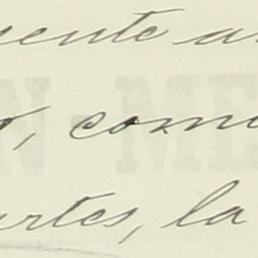 sente a
o, com
artes, la